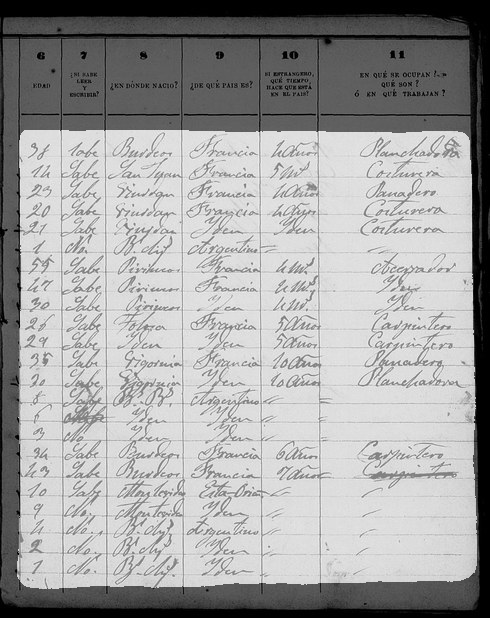 6 7 8 9 10 11
EDAD ¿SI SABE LEER Y ESCRIBIR? ¿EN DÓNDE NACIÓ? ¿DE QUÉ PAIS ES? SI ESTRANGERO, QUÉ TIEMPO HACE QUE ESTÁ EN EL PAIS? EN QUÉ SE OCUPAN? QUÉ SON? Ó EN QUÉ TRABAJAN?
38 Sabe Burdeos Francia 4 Años Planchadora
14 Sabe San Francia 5 Costurera
23 Sabe Francia 4 Años Panadero
20 Sabe Francia 4 Años Costurera
21 Sabe Yden Yden Costurera
1 No. Bs. Ays. Argentino " "
55 Sabe Pirineos Francia 4 Acepador
47 Sabe Pirineos Francia 4 Yden
30 Sabe Pirineos Yden 4 Yden
26 Sabe Tolosa Francia 5 Años Carpintero
29 Sabe Yden Yden 5 Años Carpintero
35 Sabe Francia 10 Años Panadero
30 Sabe Yden 10 Años Planchadora
8 Sabe Bs. Argentino " "
6 Yden Yden " "
3 No Yden Yden " "
34 Sabe Burdeos Francia 6 Años Carpintero
43 Sabe Burdeos Francia 7 Años Carpintero
10 Sabe Montevideo Esta. Orien " "
9 No. Montevideo Yden " "
4 No. Bs. Ays. Argentino " "
2 No. Bs. Ays. Yden " "
1 No. Bs. Ays. Yden " "